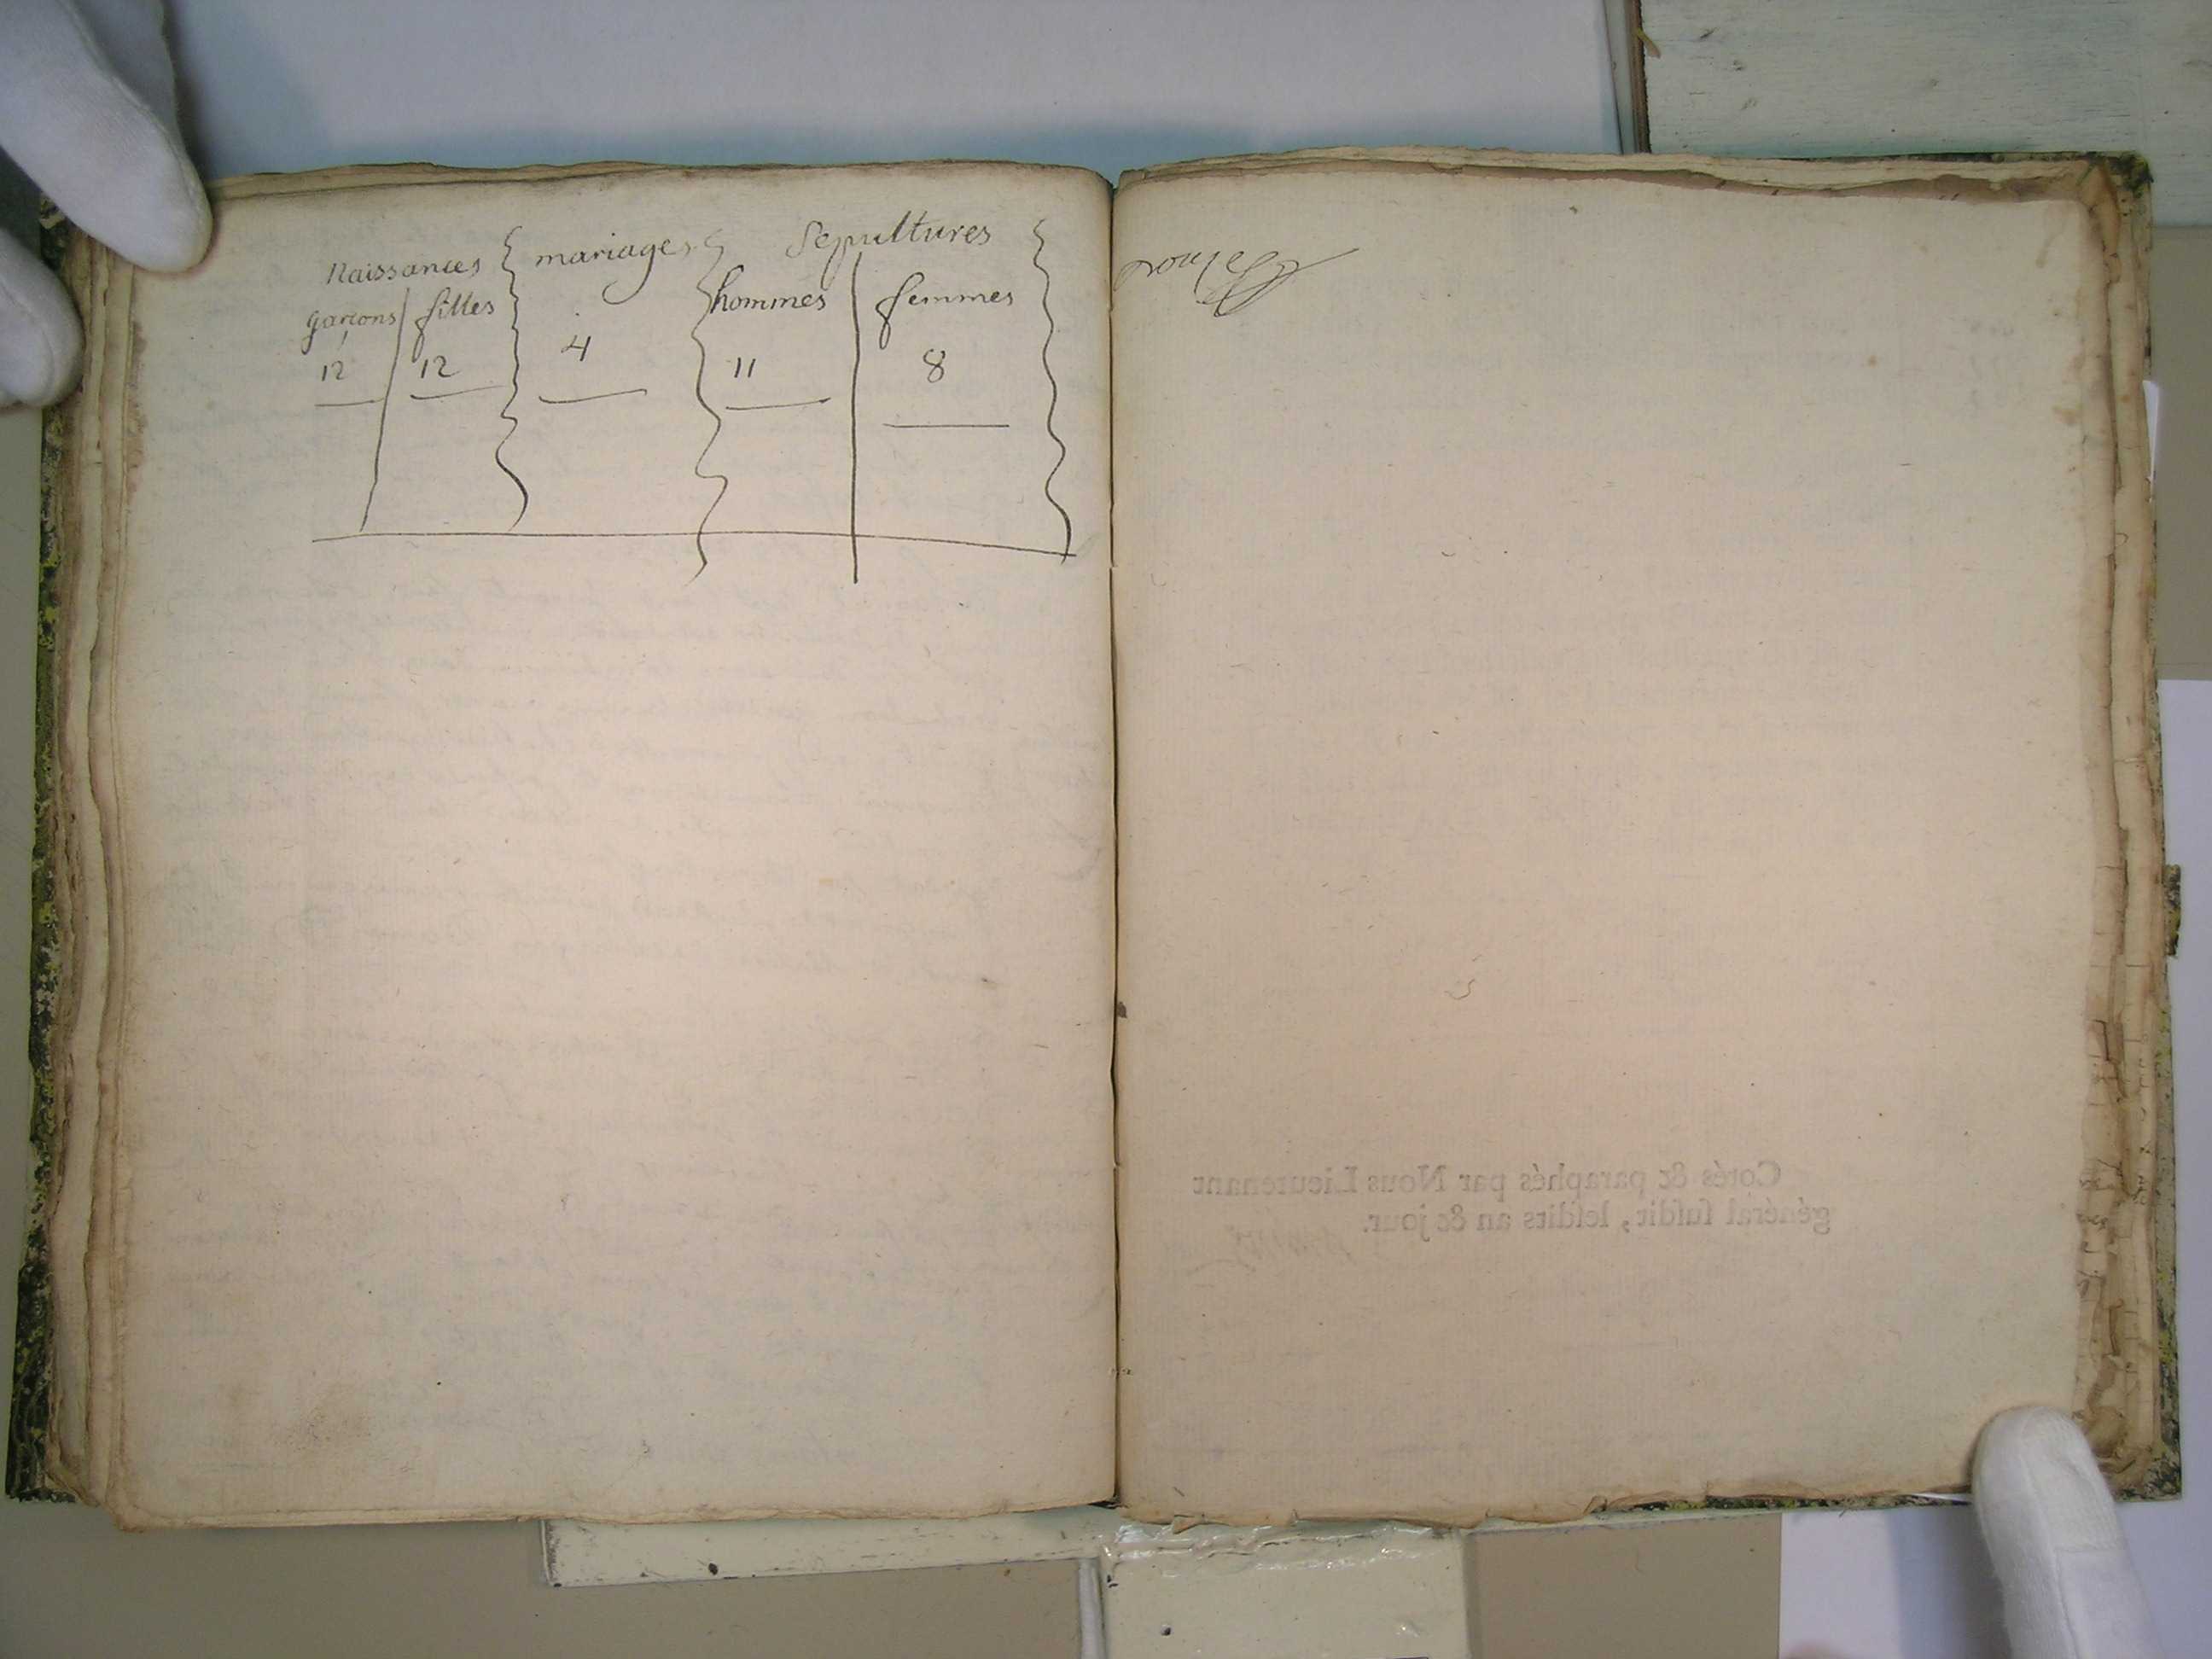 Naissances mariages Sepultures
garçons filles hommes femmes
12 12 4 11 8
Cotés & paraphés par Nous Lieutenant
général ſuſdit, leſdits an & jour.